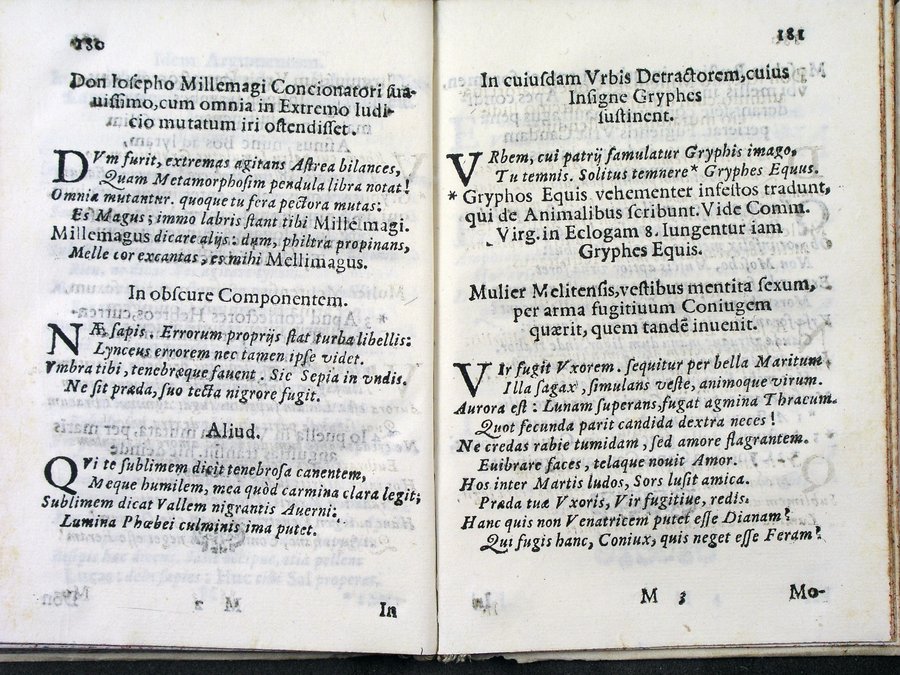 180
Don Iosepho Millemagi Concionatori sua-
uissimo, cum omnia in Extremo Iudi-
cio mutatum iri ostendisset.
DVm furit, extremas agitans Astrea bilances,
Quam Metamorphosim pendula libra notat!
Omnia mutantur. quoque tu fera pectora mutas:
Es Magus; immo labris stant tibi Millemagi.
Millemagus dicare alijs: dum, philtra propinans,
Melle cor excantas, es mihi Mellimagus.
In obscure Componentem.
NÆ sapis. Errorum proprijs stat turba libellis:
Lynceus errorem nec tamen ipse videt.
Vmbra tibi, tenebræque fauent. Sic Sepia in vndis.
Ne sit præda, suo tecta nigrore fugit.
Aliud.
QVi te sublimem dicit tenebrosa canentem,
Meque humilem, mea quòd carmina clara legit;
Sublimem dicat Vallem nigrantis Auerni:
Lumina Phœbei culminis ima putet.
M 2
In
181
In cuiusdam Vrbis Detractorem, cuius
Insigne Gryphes
sustinent.
VRbem, cui patrij famulatur Gryphis imago,
Tu temnis. Solitus temnere* Gryphes Equus.
* Gryphos Equis vehementer infestos tradunt,
qui de Animalibus scribunt. Vide Comm.
Virg. in Eclogam 8. Iungentur iam
Gryphes Equis.
Mulier Melitensis, vestibus mentita sexum,
per arma fugitiuum Coniugem
quærit, quem tandẽ inuenit.
VIr fugit Vxorem. sequitur per bella Maritum
Illa sagax, simulans veste, animoque virum.
Aurora est: Lunam superans, fugat agmina Thracum.
Quot fecunda parit candida dextra neces!
Ne credas rabie tumidam, sed amore flagrantem.
Euibrare faces, telaque nouit Amor.
Hos inter Martis ludos, Sors lusit amica.
Præda tuæ Vxoris, Vir fugitiue, redis.
Hanc quis non Venatricem putet esse Dianam?
Qui fugis hanc, Coniux, quis neget esse Feram?
M 3
Mo-